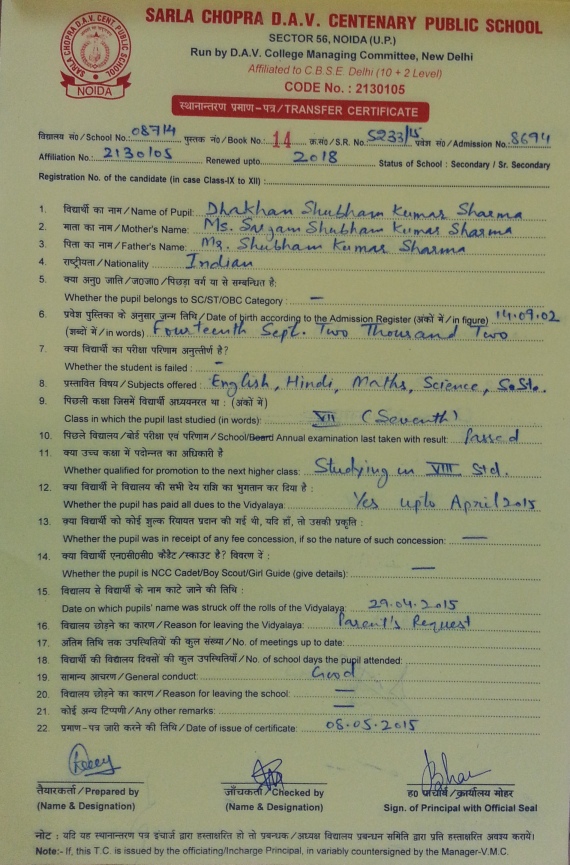 SARLA CHOPRA D.A.V. CENT. PUBLIC SCHOOL
NOIDA
SARLA CHOPRA D.A.V. CENTENARY PUBLIC SCHOOL
SECTOR 56, NOIDA (U.P.)
Run by D.A.V. College Managing Committee, New Delhi
Affiliated to C.B.S.E. Delhi (10 + 2 Level)
CODE No. : 2130105
स्थानान्तरण प्रमाण-पत्र/TRANSFER CERTIFICATE
विद्यालय सं0/School No.: 08714 पुस्तक नं0/Book No.: 14 क्र.सं0/S.R. No. 5233/15 प्रवेश सं0/Admission No.: 8694
Affiliation No.: 2130105 Renewed upto 2018 Status of School : Secondary / Sr. Secondary
Registration No. of the candidate (in case Class-IX to XII) :
1. विद्यार्थी का नाम/Name of Pupil: Dhakhan Shubham Kumar Sharma
2. माता का नाम/Mother's Name: Ms. Sargam Shubham Kumar Sharma
3. पिता का नाम/Father's Name: Mr. Shubham Kumar Sharma
4. राष्ट्रीयता/Nationality Indian
5. क्या अनु0 जाति/ज0जा0/पिछड़ा वर्ग या से सम्बन्धित है:
Whether the pupil belongs to SC/ST/OBC Category : —
6. प्रवेश पुस्तिका के अनुसार जन्म तिथि/Date of birth according to the Admission Register (अंकों में/in figure) 14.09.02
(शब्दों में/in words) Fourteenth Sept. Two Thousand Two
7. क्या विद्यार्थी का परीक्षा परिणाम अनुत्तीर्ण है?
Whether the student is failed : -
8. प्रस्तावित विषय/Subjects offered : English, Hindi, Maths, Science, S.St.
9. पिछली कक्षा जिसमें विद्यार्थी अध्ययनरत था : (अंकों में)
Class in which the pupil last studied (in words) VII (Seventh)
10. पिछले विद्यालय/बोर्ड परीक्षा एवं परिणाम/School/Board Annual examination last taken with result: Passed
11. क्या उच्च कक्षा में पदोन्नत का अधिकारी है
Whether qualified for promotion to the next higher class: Studying in VIII Std.
12. क्या विद्यार्थी ने विद्यालय की सभी देय राशि का भुगतान कर दिया है :
Whether the pupil has paid all dues to the Vidyalaya: Yes upto April 2015
13. क्या विद्यार्थी को कोई शुल्क रियायत प्रदान की गई थी, यदि हाँ, तो उसकी प्रकृति :
Whether the pupil was in receipt of any fee concession, if so the nature of such concession: —
14. क्या विद्यार्थी एन0सी0सी0 कैडैट/स्काउट है? विवरण दें :
Whether the pupil is NCC Cadet/Boy Scout/Girl Guide (give details): —
15. विद्यालय से विद्यार्थी के नाम काटे जाने की तिथि :
Date on which pupils' name was struck off the rolls of the Vidyalaya: 29.04.2015
16. विद्यालय छोड़ने का कारण/Reason for leaving the Vidyalaya: Parent's Request
17. अंतिम तिथि तक उपस्थितियों की कुल संख्या/No. of meetings up to date:
18. विद्यार्थी की विद्यालय दिवसों की कुल उपस्थितियाँ/No. of school days the pupil attended:
19. सामान्य आचरण/General conduct: Good
20. विद्यालय छोड़ने का कारण/Reason for leaving the school: —
21. कोई अन्य टिप्पणी/Any other remarks: —
22. प्रमाण-पत्र जारी करने की तिथि/Date of issue of certificate: 08.05.2015
तैयारकर्ता/Prepared by जाँचकर्ता/Checked by ह0 प्राचार्य/कार्यालय मोहर
(Name & Designation) (Name & Designation) Sign. of Principal with Official Seal
नोट : यदि यह स्थानान्तरण पत्र इंचार्ज द्वारा हस्ताक्षरित हो तो प्रबन्धक/अध्यक्ष विद्यालय प्रबन्धन समिति द्वारा प्रति हस्ताक्षरित अवश्य करायें।
Note:- If, this T.C. is issued by the officiating/Incharge Principal, in variably countersigned by the Manager-V.M.C.